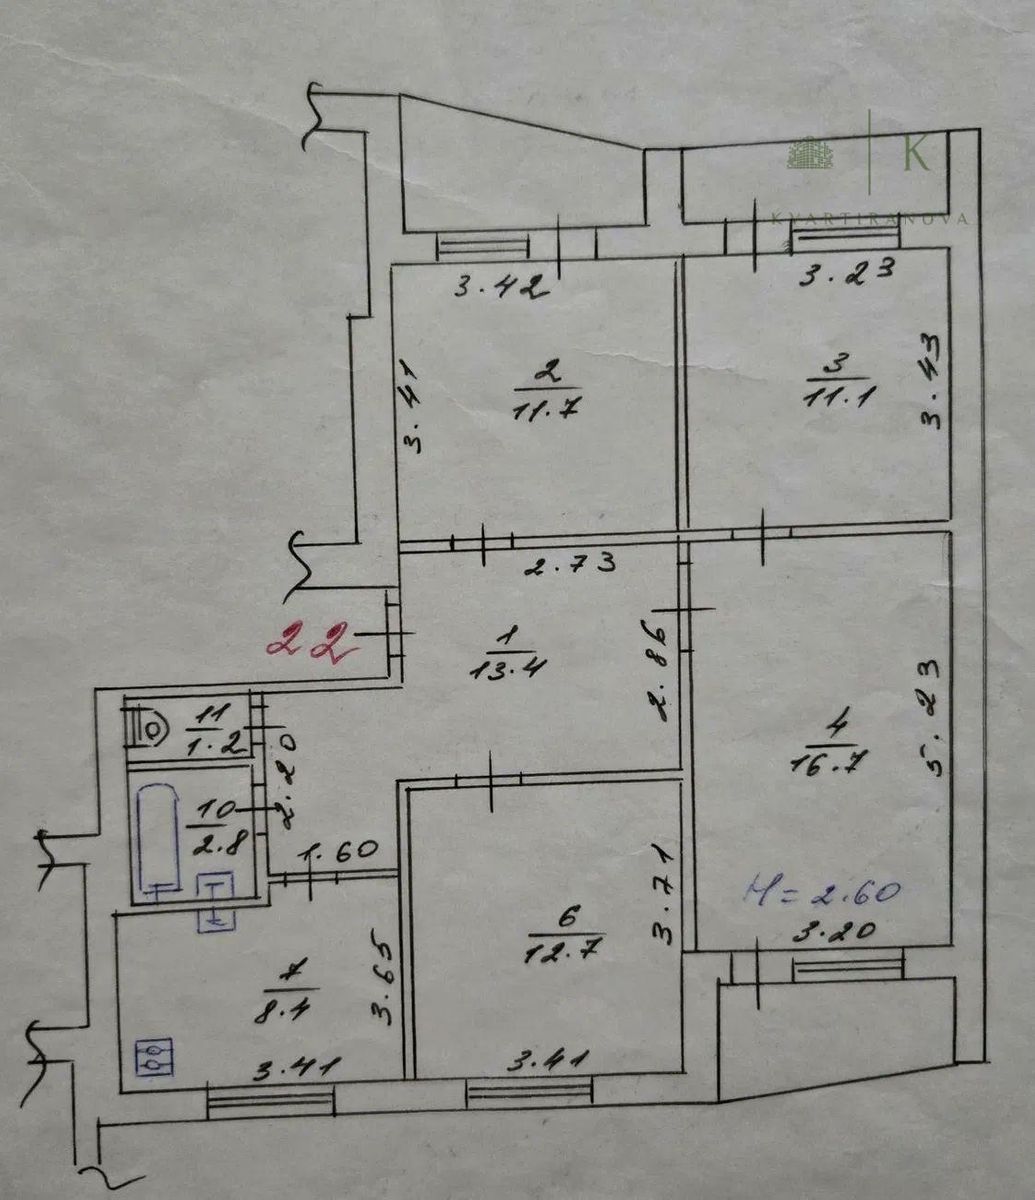 K
KVARTIRANOVA
3.42
3.23
3.41
2
11.7
3
11.1
3.43
2.73
22
1
13.4
2.86
11
1.2
2.20
4
16.7
5.23
10
2.8
1.60
3.71
H = 2.60
3.20
6
12.7
3.65
7
8.4
3.41
3.41